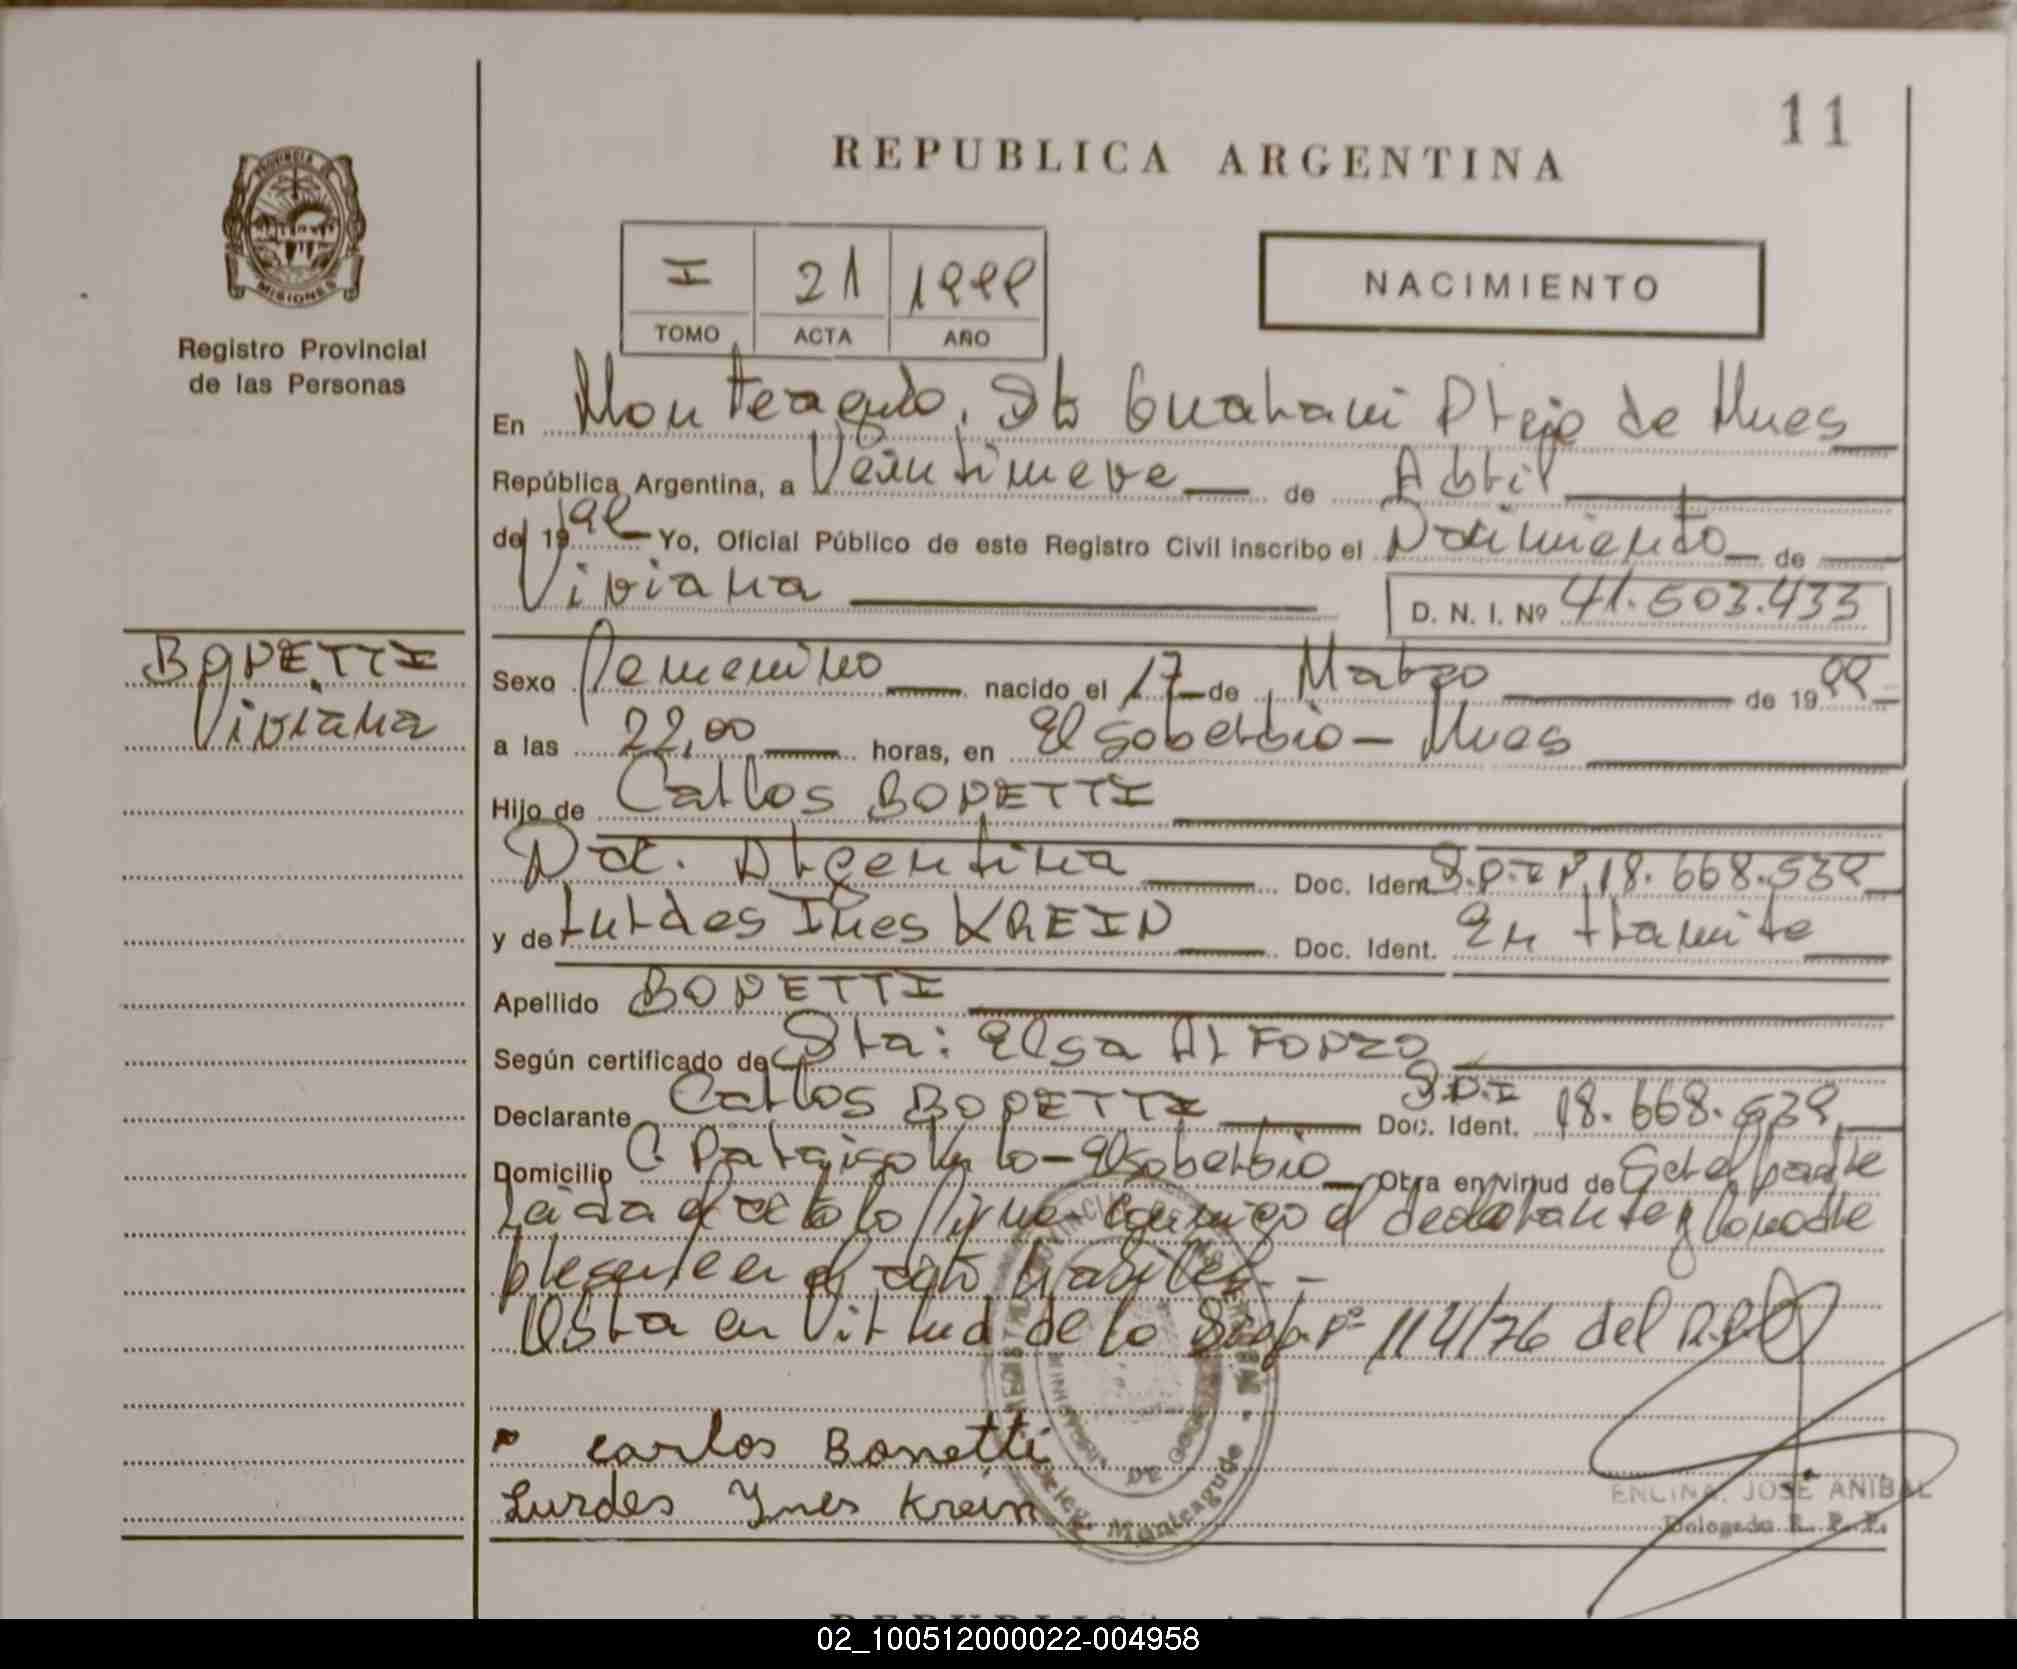 11
REPUBLICA ARGENTINA
PROVINCIA DE
MISIONES
Registro Provincial
de las Personas
I 21 1999
TOMO ACTA AÑO
NACIMIENTO
En Monteagudo, Dto Guarani Pcia de Mnes
República Argentina, a Veintinueve de Abril
de 1999 Yo, Oficial Público de este Registro Civil inscribo el Nacimiento de
Viviana D. N. I. Nº 41.503.433
BONETTI
Viviana
Sexo Femenino nacido el 17 de Marzo de 1999
a las 22,00 horas, en El Soberbio - Mnes
Hijo de Carlos BONETTI
Nac. Argentina Doc. Ident. 18.668.539
y de Lurdes Ines KREIN Doc. Ident. En tramite
Apellido BONETTI
Según certificado de Sra: Elsa ALFONZO
Declarante Carlos BONETTI D.N.I Doc. Ident. 18.668.539
Domicilio C. Paraiso - El Soberbio Obra en virtud de Ser el padre
Leida el acta la firma conmigo el declarante y la madre
presente en el acto
Obra en Virtud de la Nº 114/76 del R.P.P
Carlos Bonetti
Lurdes Ynes Krein
Deleg. Monteagudo
ENCINA, JOSE ANIBAL
Delegado R. P. P.
REPUBLICA ARGENTINA
02_100512000022-004958